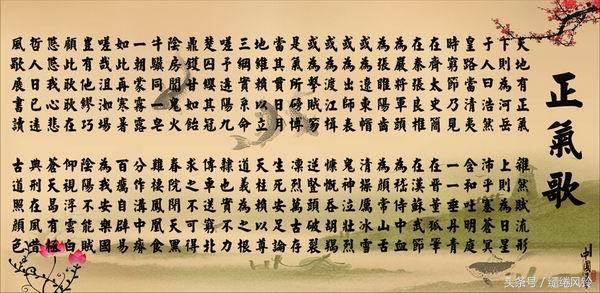 正氣歌
天地有正氣 雜然賦流形
下則為河岳 上則為日星
于人曰浩然 沛乎塞蒼冥
皇路當清夷 含和吐明庭
時窮節乃見 一一垂丹青
在齊太史簡 在晉董狐筆
在秦張良椎 在漢蘇武節
為嚴將軍頭 為嵇侍中血
為張睢陽齒 為顏常山舌
或為遼東帽 清操厲冰雪
或為出師表 鬼神泣壯烈
或為渡江楫 慷慨吞胡羯
或為擊賊笏 逆豎頭破裂
是氣所磅礴 凜烈萬古存
當其貫日月 生死安足論
地維賴以立 天柱賴以尊
三綱實系命 道義為之根
嗟予遘陽九 隸也實不力
楚囚纓其冠 傳車送窮北
鼎鑊甘如飴 求之不可得
陰房闃鬼火 春院閟天黑
牛驥同一皂 雞棲鳳凰食
一朝蒙霧露 分作溝中瘠
如此再寒暑 百癘自辟易
嗟哉沮洳場 為我安樂國
豈有他繆巧 陰陽不能賊
顧此耿耿在 仰視浮雲白
悠悠我心悲 蒼天曷有極
哲人日已遠 典刑在夙昔
風檐展書讀 古道照顏色
头条号/缱绻风铃